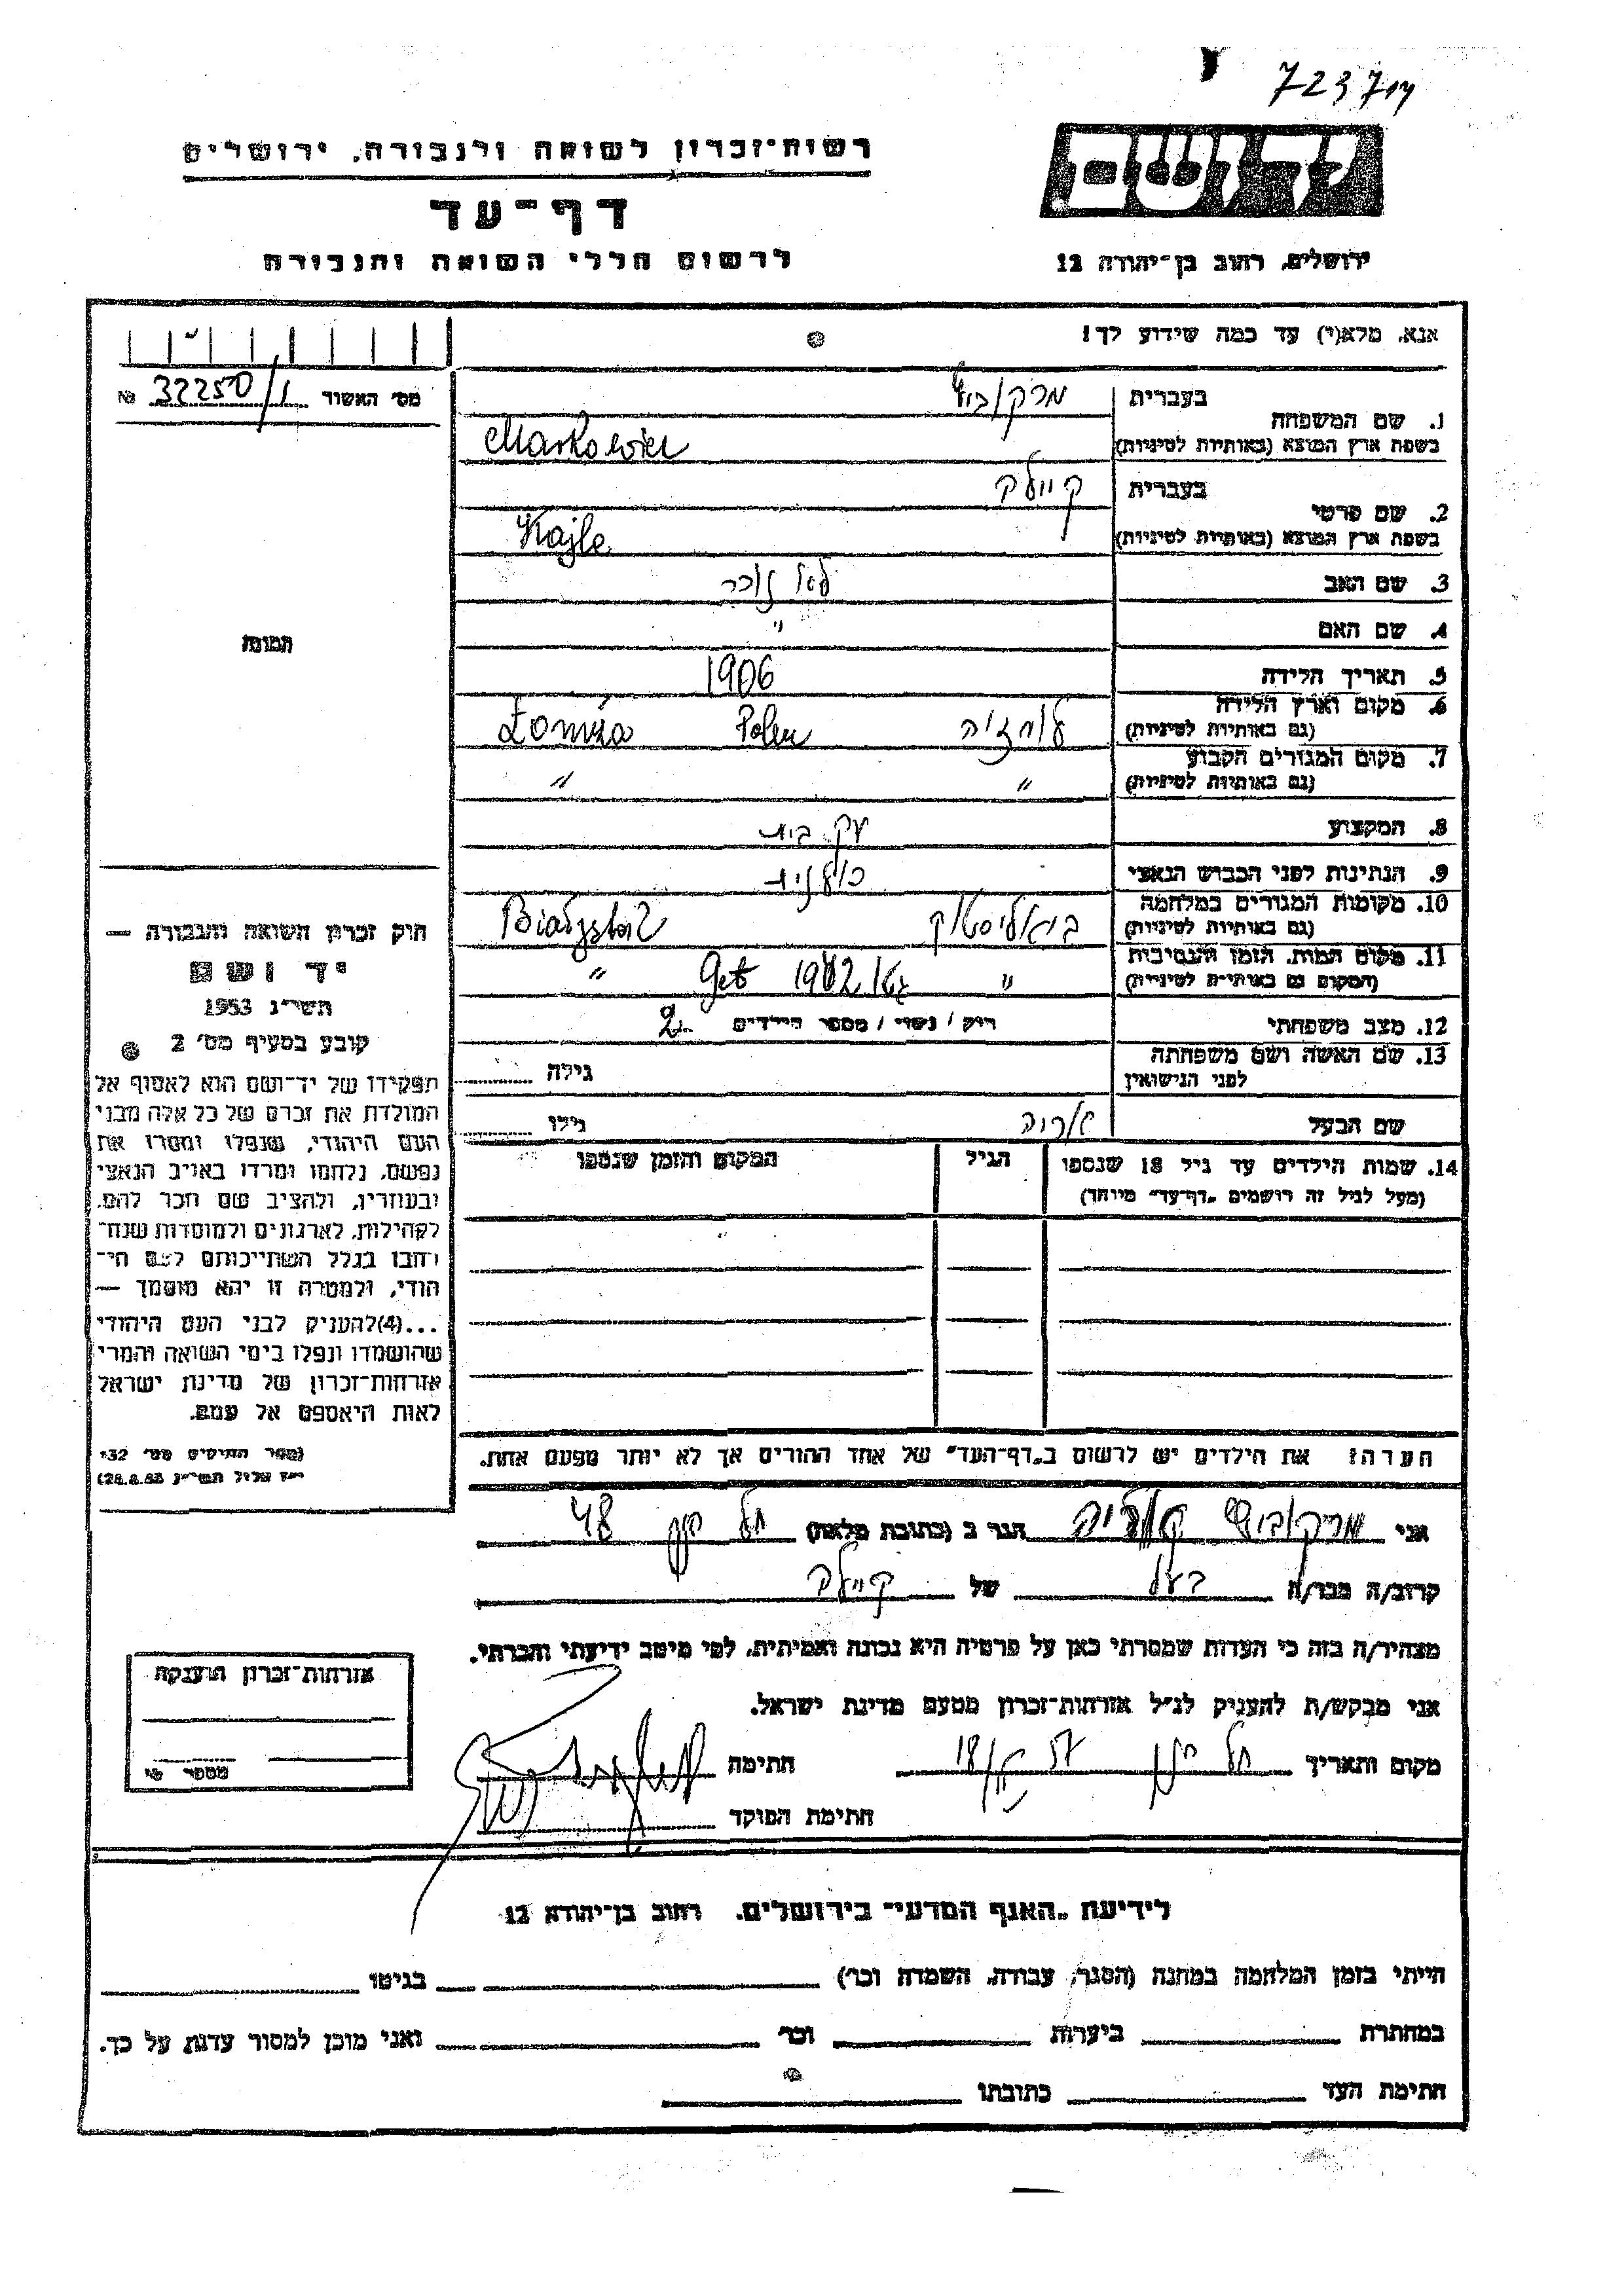 723714
רשות-זכרון לשואה ולגבורה, ירושלים
יד ושם
דף-עד
לרשום חללי השואה והגבורה
ירושלים, רחוב בן-יהודה 12
אנא, מלא(י) עד כמה שידוע לך!
מס' האשור № 32250/1
1. שם המשפחה בעברית מרקוביץ
בשפת ארץ המוצא (באותיות לטיניות) Markowicz
2. שם פרטי בעברית קיילה
בשפת ארץ המוצא (באותיות לטיניות) Kajla
3. שם האב לא זוכר
4. שם האם "
5. תאריך הלידה 1906
6. מקום וארץ הלידה (גם באותיות לטיניות) לומזה Polen Łomża
7. מקום המגורים הקבוע (גם באותיות לטיניות) " "
8. המקצוע עק. בית
9. הנתינות לפני הכבוש הנאצי פולנית
10. מקומות המגורים במלחמה (גם באותיות לטיניות) ביאליסטוק Białystok
11. מקום המות, הזמן והנסיבות (המקום גם באותיות לטיניות) " גטו 1942 Get "
12. מצב משפחתי רוק / נשוי / מספר הילדים 2
13. שם האשה ושם משפחתה לפני הנישואין גילה
שם הבעל אריה גילו
14. שמות הילדים עד גיל 18 שנספו (מעל לגיל זה רושמים "דף-עד" מיוחד) הגיל המקום והזמן שנספו
הערה: את הילדים יש לרשום ב"דף-העד" של אחד ההורים אך לא יותר מפעם אחת.
תמונה
חוק זכרון השואה והגבורה —
יד ושם
תשי"ג 1953
קובע בסעיף מס' 2
תפקידו של יד-ושם הוא לאסוף אל
המולדת את זכרם של כל אלה מבני
העם היהודי, שנפלו ומסרו את
נפשם, נלחמו ומרדו באויב הנאצי
ובעוזריו, ולהציב שם וזכר להם,
לקהילות, לארגונים ולמוסדות שנח-
רבו בגלל השתייכותם לעם הי-
הודי, ולמטרה זו יהא מוסמך —
...(4) להעניק לבני העם היהודי
שהושמדו ונפלו בימי השואה והמרי
אזרחות-זכרון של מדינת ישראל
לאות היאספם אל עמם.
(ספר החוקים מס' 132
י"ז אלול תשי"ג 28.8.53)
אני מרקוביץ אריה הגר ב (כתובת מלאה) תל 48
קרוב/ה מכר/ה בעל של קיילה
מצהיר/ה בזה כי העדות שמסרתי כאן על פרטיה היא נכונה ואמיתית, לפי מיטב ידיעתי והכרתי.
אני מבקש/ת להעניק לנ"ל אזרחות-זכרון מטעם מדינת ישראל.
מקום ותאריך תל חתימה
חתימת הפוקד
אזרחות-זכרון הוענקה
מספר
לידיעת "האגף המדעי" בירושלים, רחוב בן-יהודא 12
הייתי בזמן המלחמה במחנה (הסגר, עבודה, השמדה וכו') בגיטו
במחתרת ביערות וכו' ואני מוכן למסור עדות על כך.
חתימת העד כתובתו